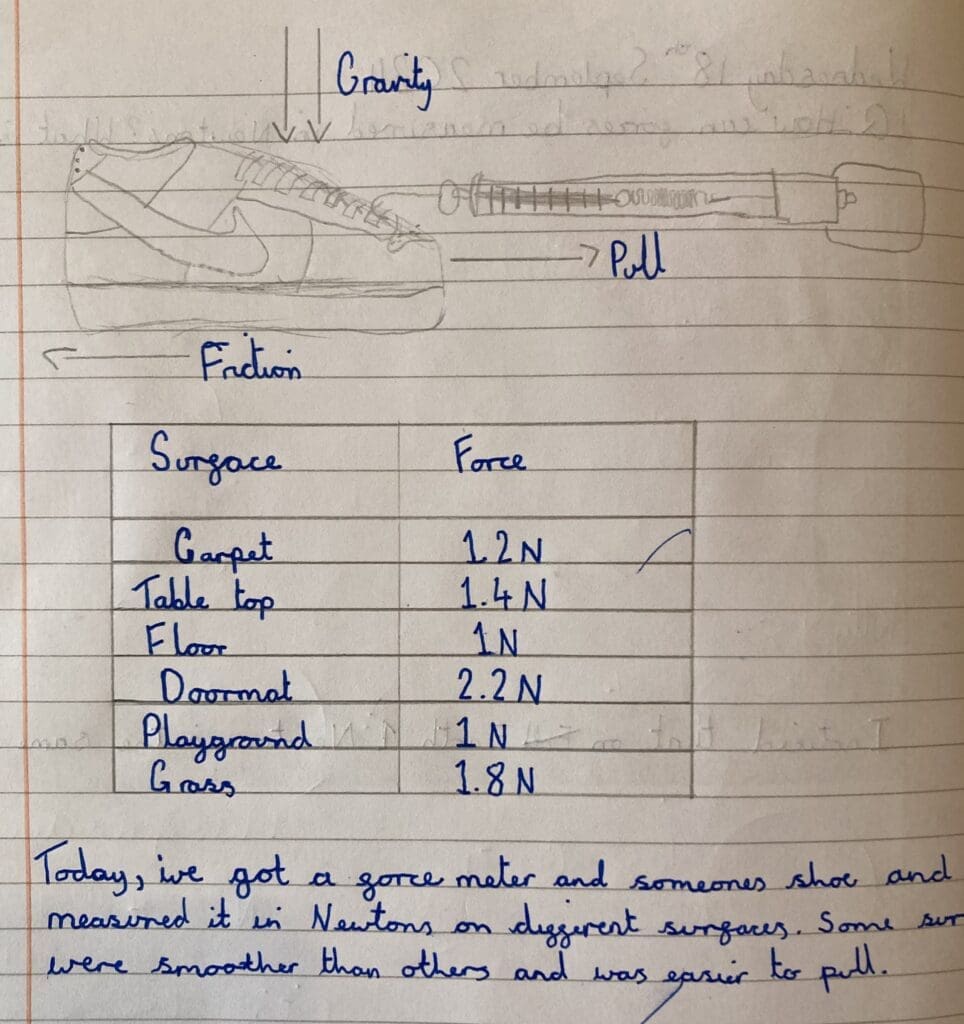 Gravity
Pull
Friction
Surface Force
Carpet 1.2 N
Table top 1.4 N
Floor 1 N
Doormat 2.2 N
Playground 1 N
Grass 1.8 N
Today, we got a force meter and someones shoe and
measured it in Newtons on different surfaces. Some sur
were smoother than others and was easier to pull.